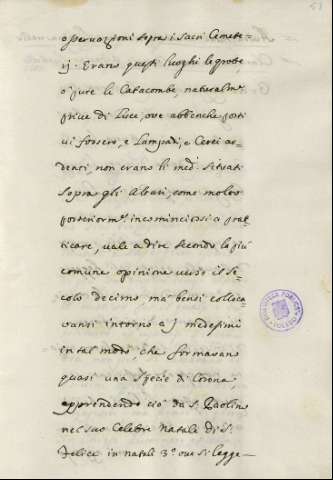 oservazioni sopra i Sacri Cemete=
rj. Erano questi luoghi le grotte
o pure le Catacombe, naturalm.e
prive di Luce, ove abbenche posti
vi fossero, e Lampadi, e Cerei ar=
denti, non erano li med.i situati
sopra gli Altari, come molto
posteriorm.e incominciossi a prat=
ticare, vale a dire secondo la più
comune opinione verso il Se=
colo decimo, mà bensi colloca=
vansi intorno a i medesimi
in tal modo che formavano
quasi una Specie di Corona,
apprendendo ciò da S. Paolino
nel suo Celebre Natale di S.
Felice in natali 3.o ove si legge—